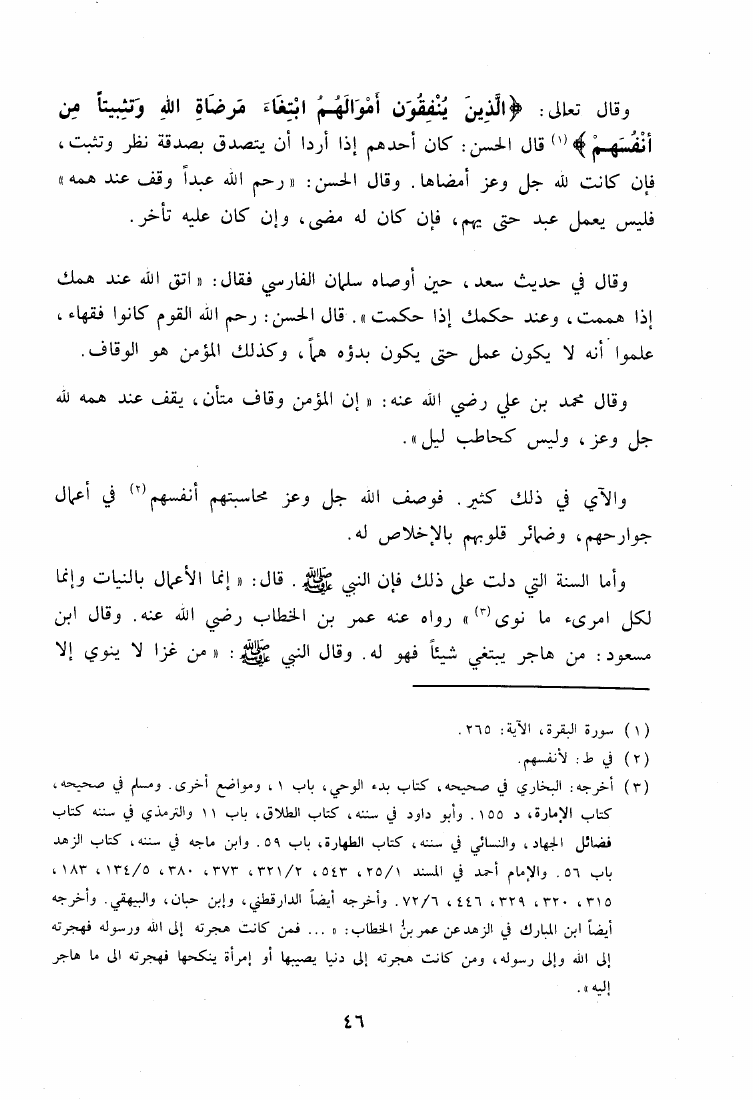 وقال تعالى: ﴿الَّذِينَ يُنْفِقُونَ أَمْوَالَهُمُ ابْتِغَاءَ مَرضَاةِ اللهِ وَتَثْبِيتاً مِن
أَنْفُسِهِمْ﴾(١) قال الحسن: كان أحدهم إذا أردا أن يتصدق بصدقة نظر وتثبت،
فإن كانت لله جل وعز أمضاها. وقال الحسن: «رحم الله عبداً وقف عند همه»
فليس يعمل عبد حتى يهم، فإن كان له مضى، وإن كان عليه تأخر.
وقال في حديث سعد، حين أوصاه سلمان الفارسي فقال: «اتق الله عند همك
إذا هممت، وعند حكمك إذا حكمت». قال الحسن: رحم الله القوم كانوا فقهاء،
علموا أنه لا يكون عمل حتى يكون بدؤه هماً، وكذلك المؤمن هو الوقاف.
وقال محمد بن علي رضي الله عنه: «إن المؤمن وقاف متأن، يقف عند همه لله
جل وعز، وليس كحاطب ليل».
والآي في ذلك كثير. فوصف الله جل وعز محاسبتهم أنفسهم(٢) في أعمال
جوارحهم، وضمائر قلوبهم بالإخلاص له.
وأما السنة التي دلت على ذلك فإن النبي ﷺ. قال: «إنما الأعمال بالنيات وإنما
لكل امرىء ما نوى(٣)» رواه عنه عمر بن الخطاب رضي الله عنه. وقال ابن
مسعود: من هاجر يبتغي شيئاً فهو له. وقال النبي ﷺ: «من غزا لا ينوي إلا
(١) سورة البقرة، الآية: ٢٦٥.
(٢) في ط: لأنفسهم.
(٣) أخرجه: البخاري في صحيحه، كتاب بدء الوحي، باب ١، ومواضع أخرى. ومسلم في صحيحه،
كتاب الإمارة، د ١٥٥. وأبو داود في سننه، كتاب الطلاق، باب ١١ والترمذي في سننه كتاب
فضائل الجهاد، والنسائي في سننه، كتاب الطهارة، باب ٥٩. وابن ماجه في سننه، كتاب الزهد
باب ٥٦. والإمام أحمد في المسند ٢٥/١، ٥٤٣، ٣٢١/٢، ٣٧٣، ٣٨٠، ١٣٤/٥، ١٨٣،
٣١٥، ٣٢٠، ٣٢٩، ٤٤٦، ٧٢/٦. وأخرجه أيضاً الدارقطني، وإبن حبان، والبيهقي. وأخرجه
أيضاً ابن المبارك في الزهد عن عمر بنُ الخطاب: «... فمن كانت هجرته إلى الله ورسوله فهجرته
إلى الله وإلى رسوله، ومن كانت هجرته إلى دنيا يصيبها أو إمرأة ينكحها فهجرته الى ما هاجر
إليه».
٤٦